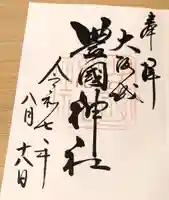 奉拝
大阪城
豊國神社
令和七年
八月十八日